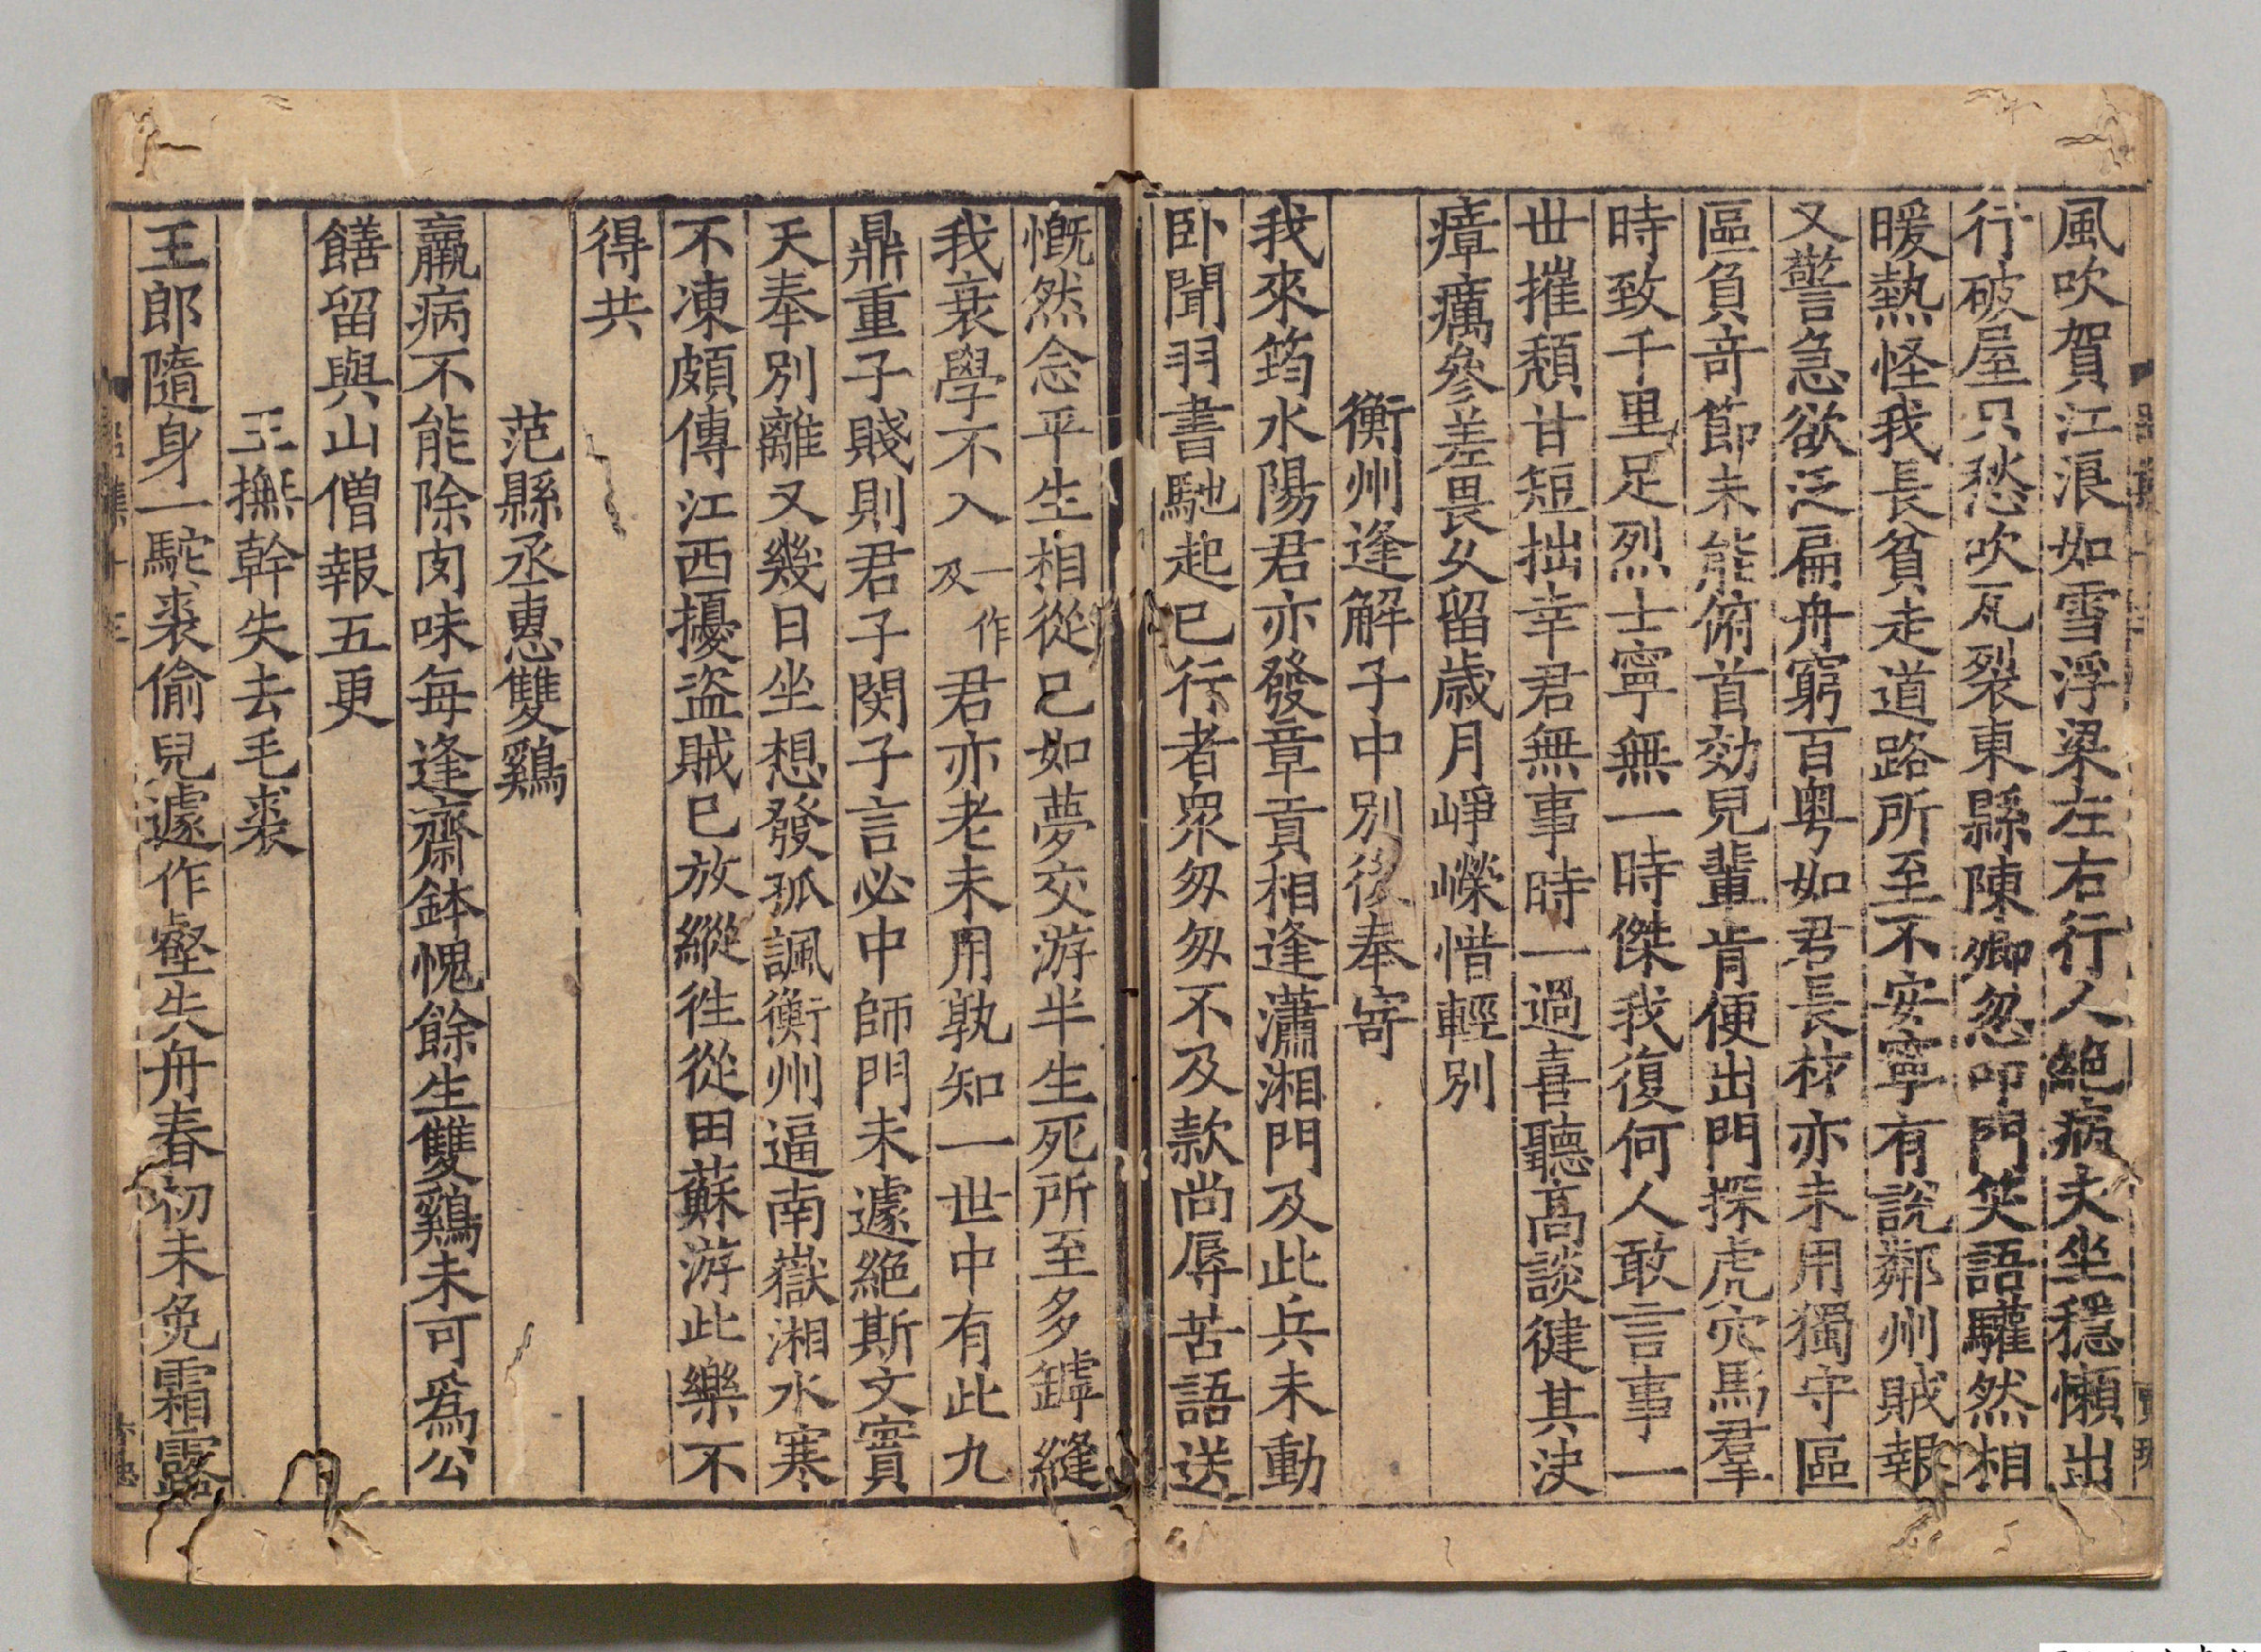 風吹賀江浪如雪浮梁左右行人絶病夫坐穩懶出
行破屋只愁吹瓦裂東縣陳卿忽叩門笑語驩然相
暖熱怪我長貧走道路所至不安寧有說鄰州賊報
又警急欲泛扁舟窮百粤如君長材亦未用獨守區
區負竒節未能俯首効兒輩肯便出門探虎穴馬羣
時致千里足烈士寧無一時傑我復何人敢言事一
丗摧頽甘短拙幸君無事時一過喜聽髙談徤其决
瘴癘參差畏乆留歳月崢嶸惜輕别
衡州逢解子中别後奉寄
我來筠水陽君亦發章貢相逢瀟湘門及此兵未動
卧聞羽書馳起巳行者衆匆匆不及款尚辱苦語送
慨然念平生相從已如夢交游半生死所至多罅縫
我衰學不入一作及君亦老未用孰知一世中有此九
鼎重子賤則君子閔子言必中師門未遽絶斯文實
天奉别離又幾日坐想發孤諷衡州逼南嶽湘水寒
不凍頗傳江西擾盜賊巳放縱徃從田蘇游此樂不
得共
范縣丞惠雙鷄
羸病不能除肉味每逢齋鉢愧餘生雙鷄未可爲公
饍留與山僧報五更
王撫幹失去毛裘
王郎隨身一駝裘偷兒遽作壑失舟春初未免霜露